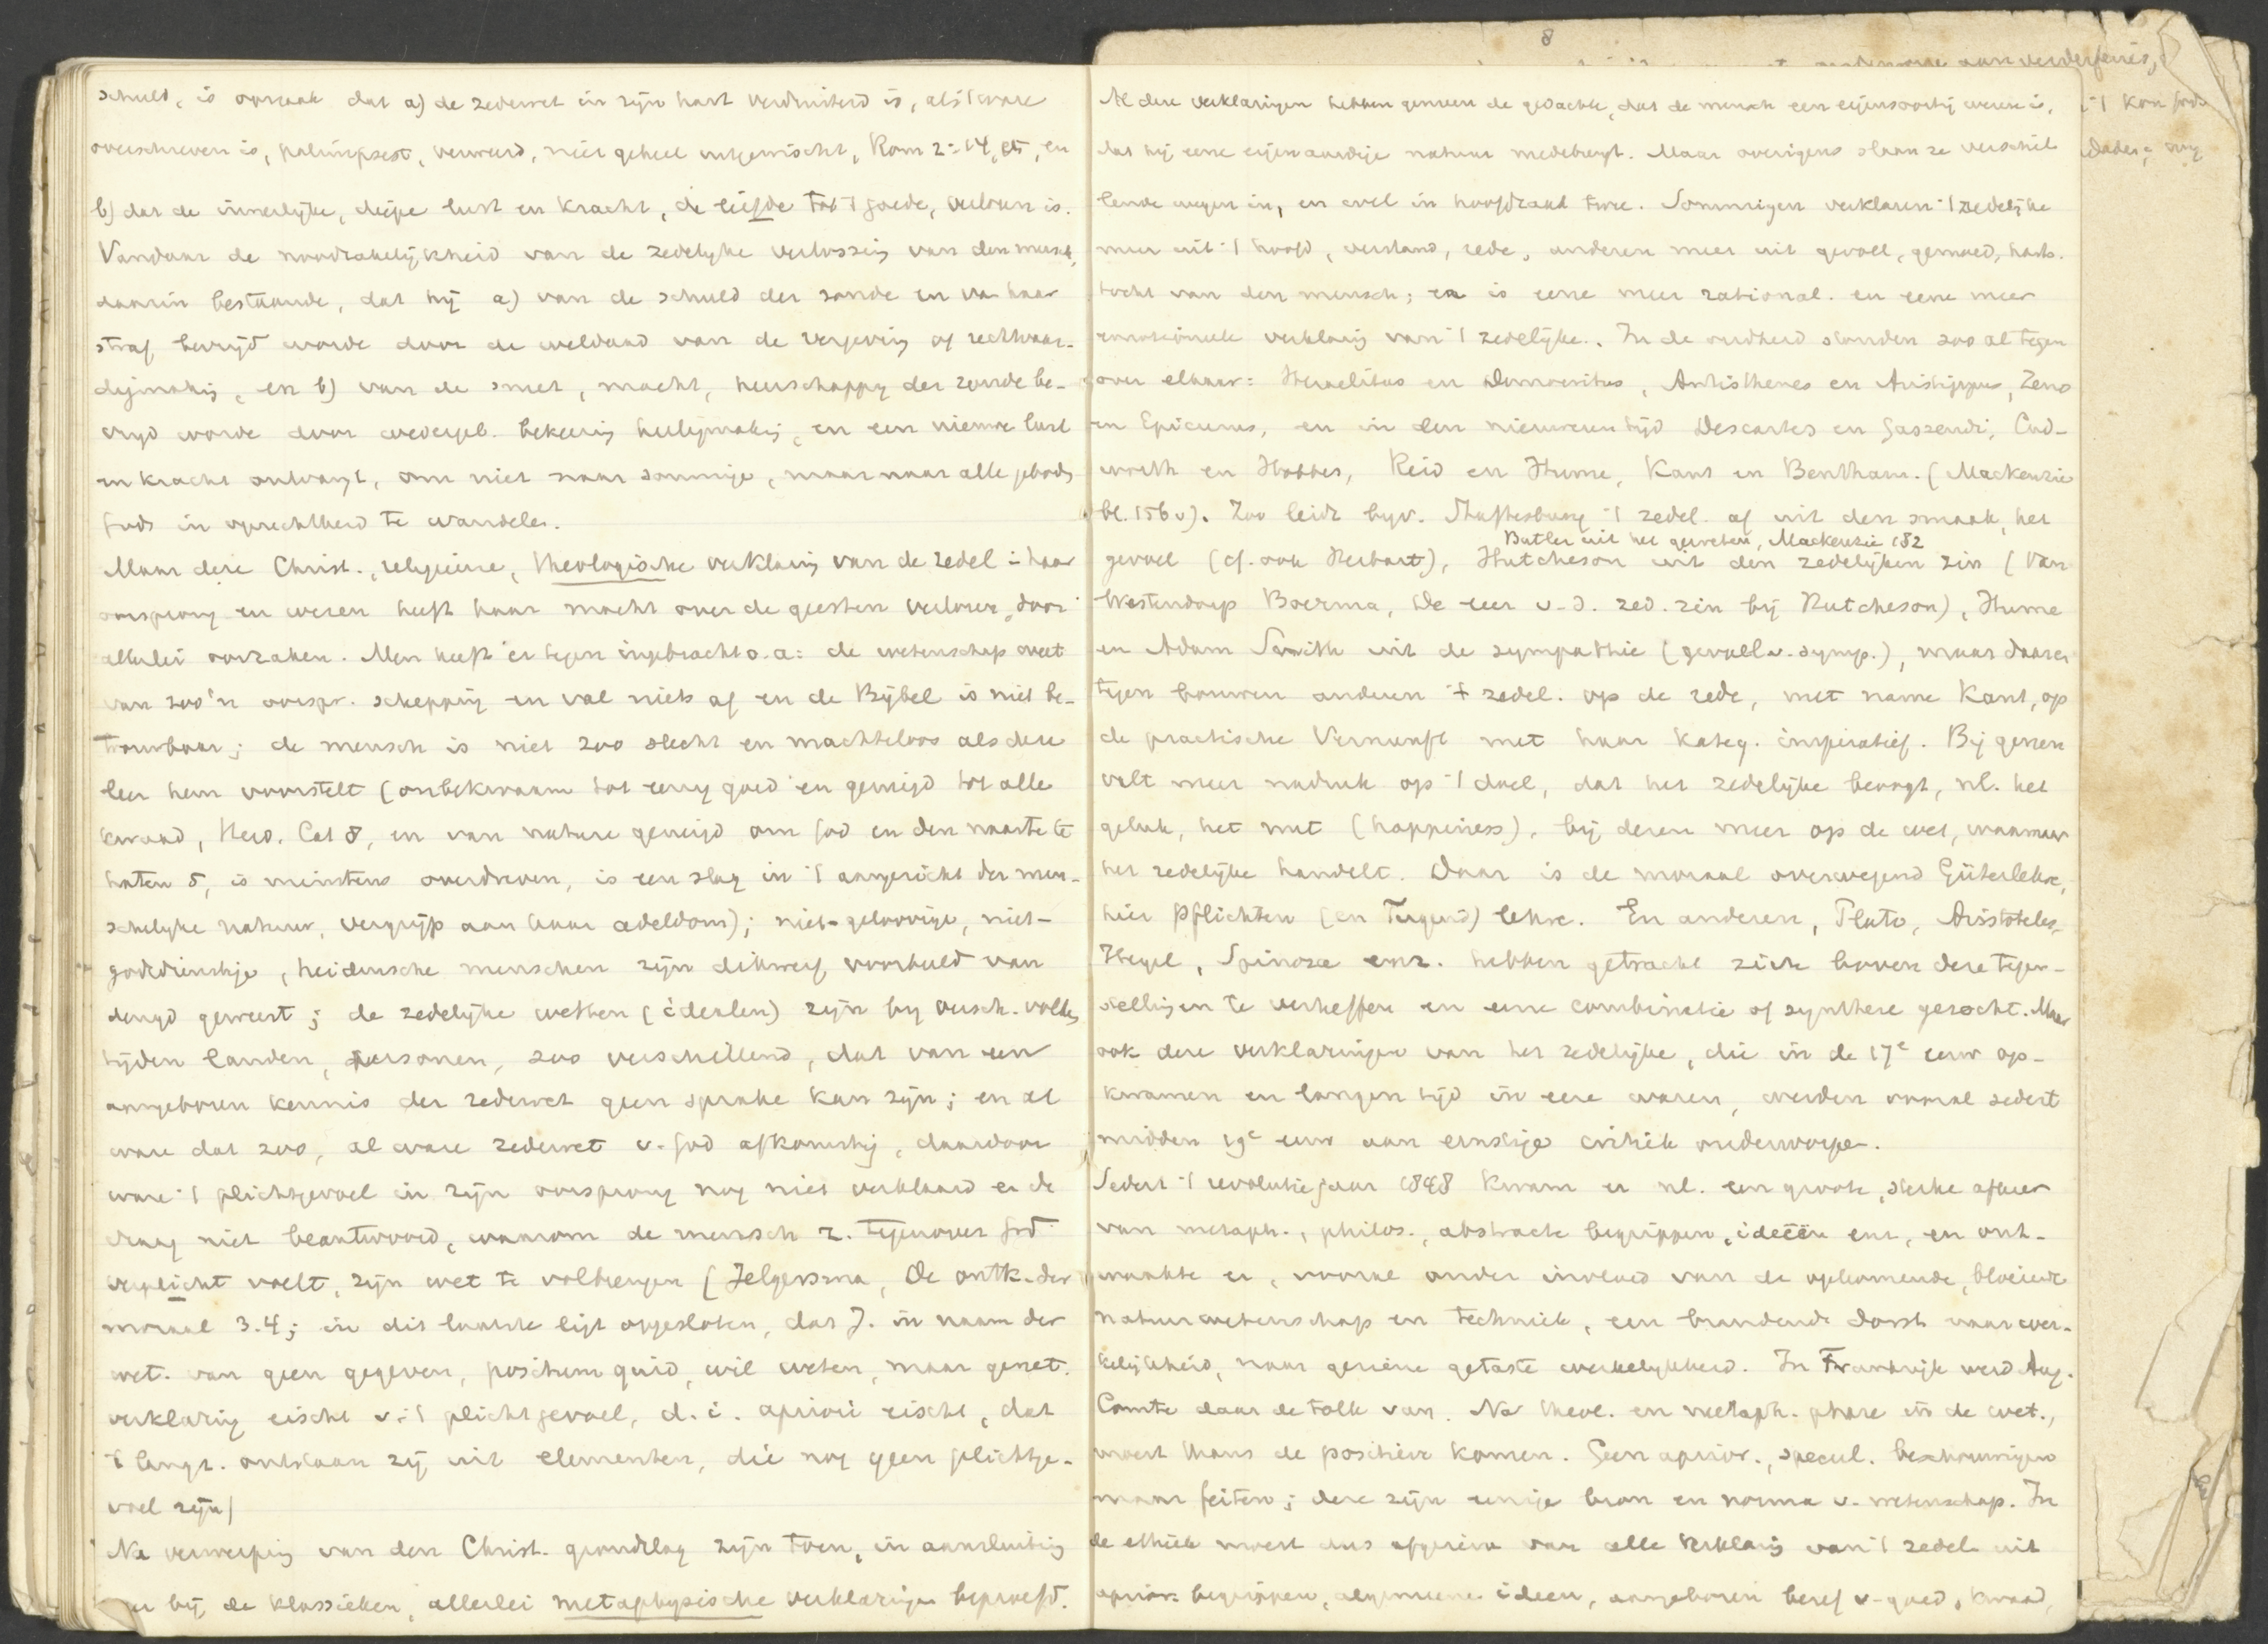 schuld, is oorzaak dat a) de zedewet in zijn hart verduisterd is, als 't ware
overschreven is, palimpsest, verweerd, niet geheel uitgewischt, Rom 2:14, 15, en
b) dat de innerlijke, diepe lust en kracht, de liefde tot 't goede, verloren is.
Vandaar de noodzakelijkheid van de zedelijke verlossing van den mensch,
daarin bestaande, dat hij a) van de schuld der zonde en va haar
straf bevrijd worde door de weldaad van de vergeving of rechtvaar-
digmaking, en b) van de smet, macht, heerschappy der zonde be-
vrijd worde door wedergeb. bekeering heiligmaking, en een nieuwe lust
en kracht ontvangt, om niet naar sommige, maar naar alle geboden
Gods in oprechtheid te wandelen.
Maar deze Christ., religieuse, theologische verklaring van de zedel in haar
oorsprong en wezen heeft haar macht over de geesten verloren, door
allerlei oorzaken. Men heeft er tegen ingebracht o.a: de wetenschap weet
van zoo'n oorspr. schepping en val niets af en de Bijbel is niet be-
trouwbaar; de mensch is niet zoo slecht en machteloos als deze
leer hem voorstelt (onbekwaam tot eenig goed en geneigd tot alle
kwaad, Heid. Cat 8, en van nature geneigd om God en den naaste te
haten 5, is minstens overdreven, is een slag in 't aangezicht der men-
schelijke natuur, vergrijp aan haar adeldom); niet-geloovige, niet-
godsdienstige, heidensche menschen zijn dikwerf voorbeeld van
deugd geweest; de zedelijke wetten (idealen) zijn by versch. volken,
tijden landen, personen, zoo verschillend, dat van een
aangeboren kennis der zedewet geen sprake kan zijn; en al
ware dat zoo, al ware zedewet v. God afkomstig, daardoor
ware 't plichtgevoel in zijn oorsprong nog niet verklaard en de
vraag niet beantwoord, waarom de mensch z. tegenover God
verplicht voelt, zijn wet te volbrengen (Jelgersma, De ontk. der
moraal 3.4; in dit laatste ligt opgesloten, dat J. in naam der
wet. van geen gegeven, positum quid, wil weten, maar genet.
verklaring eischt v. 't plichtgevoel, d.i. apriori eischt, dat
't langz. ontstaan zij uit elementen, die nog geen plichtge-
voel zijn)
Na verwerping van den Christ. grondslag zijn toen, in aansluiting
bij de klassieken, allerlei metaphysische verklaringen beproefd.
8
Al deze verklaringen hebben gemeen de gedachte, dat de mensch een eigensoortig wezen is,
dat hij eene eigenaardige natuur medebrengt. Maar overigens slaan ze verschil
lende wegen in, en wel in hoofdzaak twee. Sommigen verklaren 't zedelijke
meer uit 't hoofd, verstand, rede, anderen meer uit gevoel, gemoed, harts-
tocht van den mensch; er is eene meer rational. en eene meer
emotioneele verklaring van 't zedelijke. In de oudheid stonden zoo al tegen
over elkaar: Heraclitus en Democritus, Antisthenes en Aristippus, Zeno
en Epicurus, en in den nieuweren tijd Descartes en Gassendi, Cud-
worth en Hobbes, Reid en Hume, Kant en Bentham. (Mackenzie
bl. 156 v). Zoo leidt byv. Shaftesbury 't zedel. af uit den smaak, het
Butler uit het geweten, Mackenzie 182
gevoel (cf. ook Herbart), Hutcheson uit den zedelijken zin (Van
Westendorp Boerma, De leer v. d. zed. zin bij Hutcheson), Hume
en Adam Smith uit de sympathie (gevoel v. symp.), maar daaren
tegen bouwen anderen 't zedel. op de rede, met name Kant, op
de practische Vernunft met haar kateg. imperatief. Bij genen
valt meer nadruk op 't doel, dat het zedelijke beoogt, nl. het
geluk, het nut (happiness), bij dezen meer op de wet, waarnaar
het zedelijke handelt. Daar is de moraal overwegend Güterlehre,
hier Pflichten (en Tugend) lehre. En anderen, Plato, Aristoteles,
Hegel, Spinoza enz. hebben getracht zich boven deze tegen-
stellingen te verheffen en eene combinatie of synthese gezocht. Maar
ook deze verklaringen van het zedelijke, die in de 17e eeuw op-
kwamen en langen tijd in eere waren, werden vooral sedert
midden 19e eeuw aan ernstige critiek onderworpen.
Sedert 't revolutiejaar 1848 kwam er nl. een groote, sterke afkeer
van metaph., philos., abstracte begrippen, ideeën enz, en ont-
waakte er, vooral onder invloed van de opkomende, bloeiende
natuurwetenschap en techniek, een brandende dorst naar wer-
kelijkheid, naar geziene getaste werkelijkheid. In Frankrijk werd Aug.
Comte daar de tolk van. Na theol. en metaph. phase in de wet.,
moest thans de positieve komen. Geen aprior., specul. beschouwingen
maar feiten; deze zijn eenige bron en norma v. wetenschap. In
de ethiek moest dus afgezien van alle verklaring van 't zedel. uit
aprior. begrippen, algemeene ideen, aangeboren besef v. goed, kwaad,